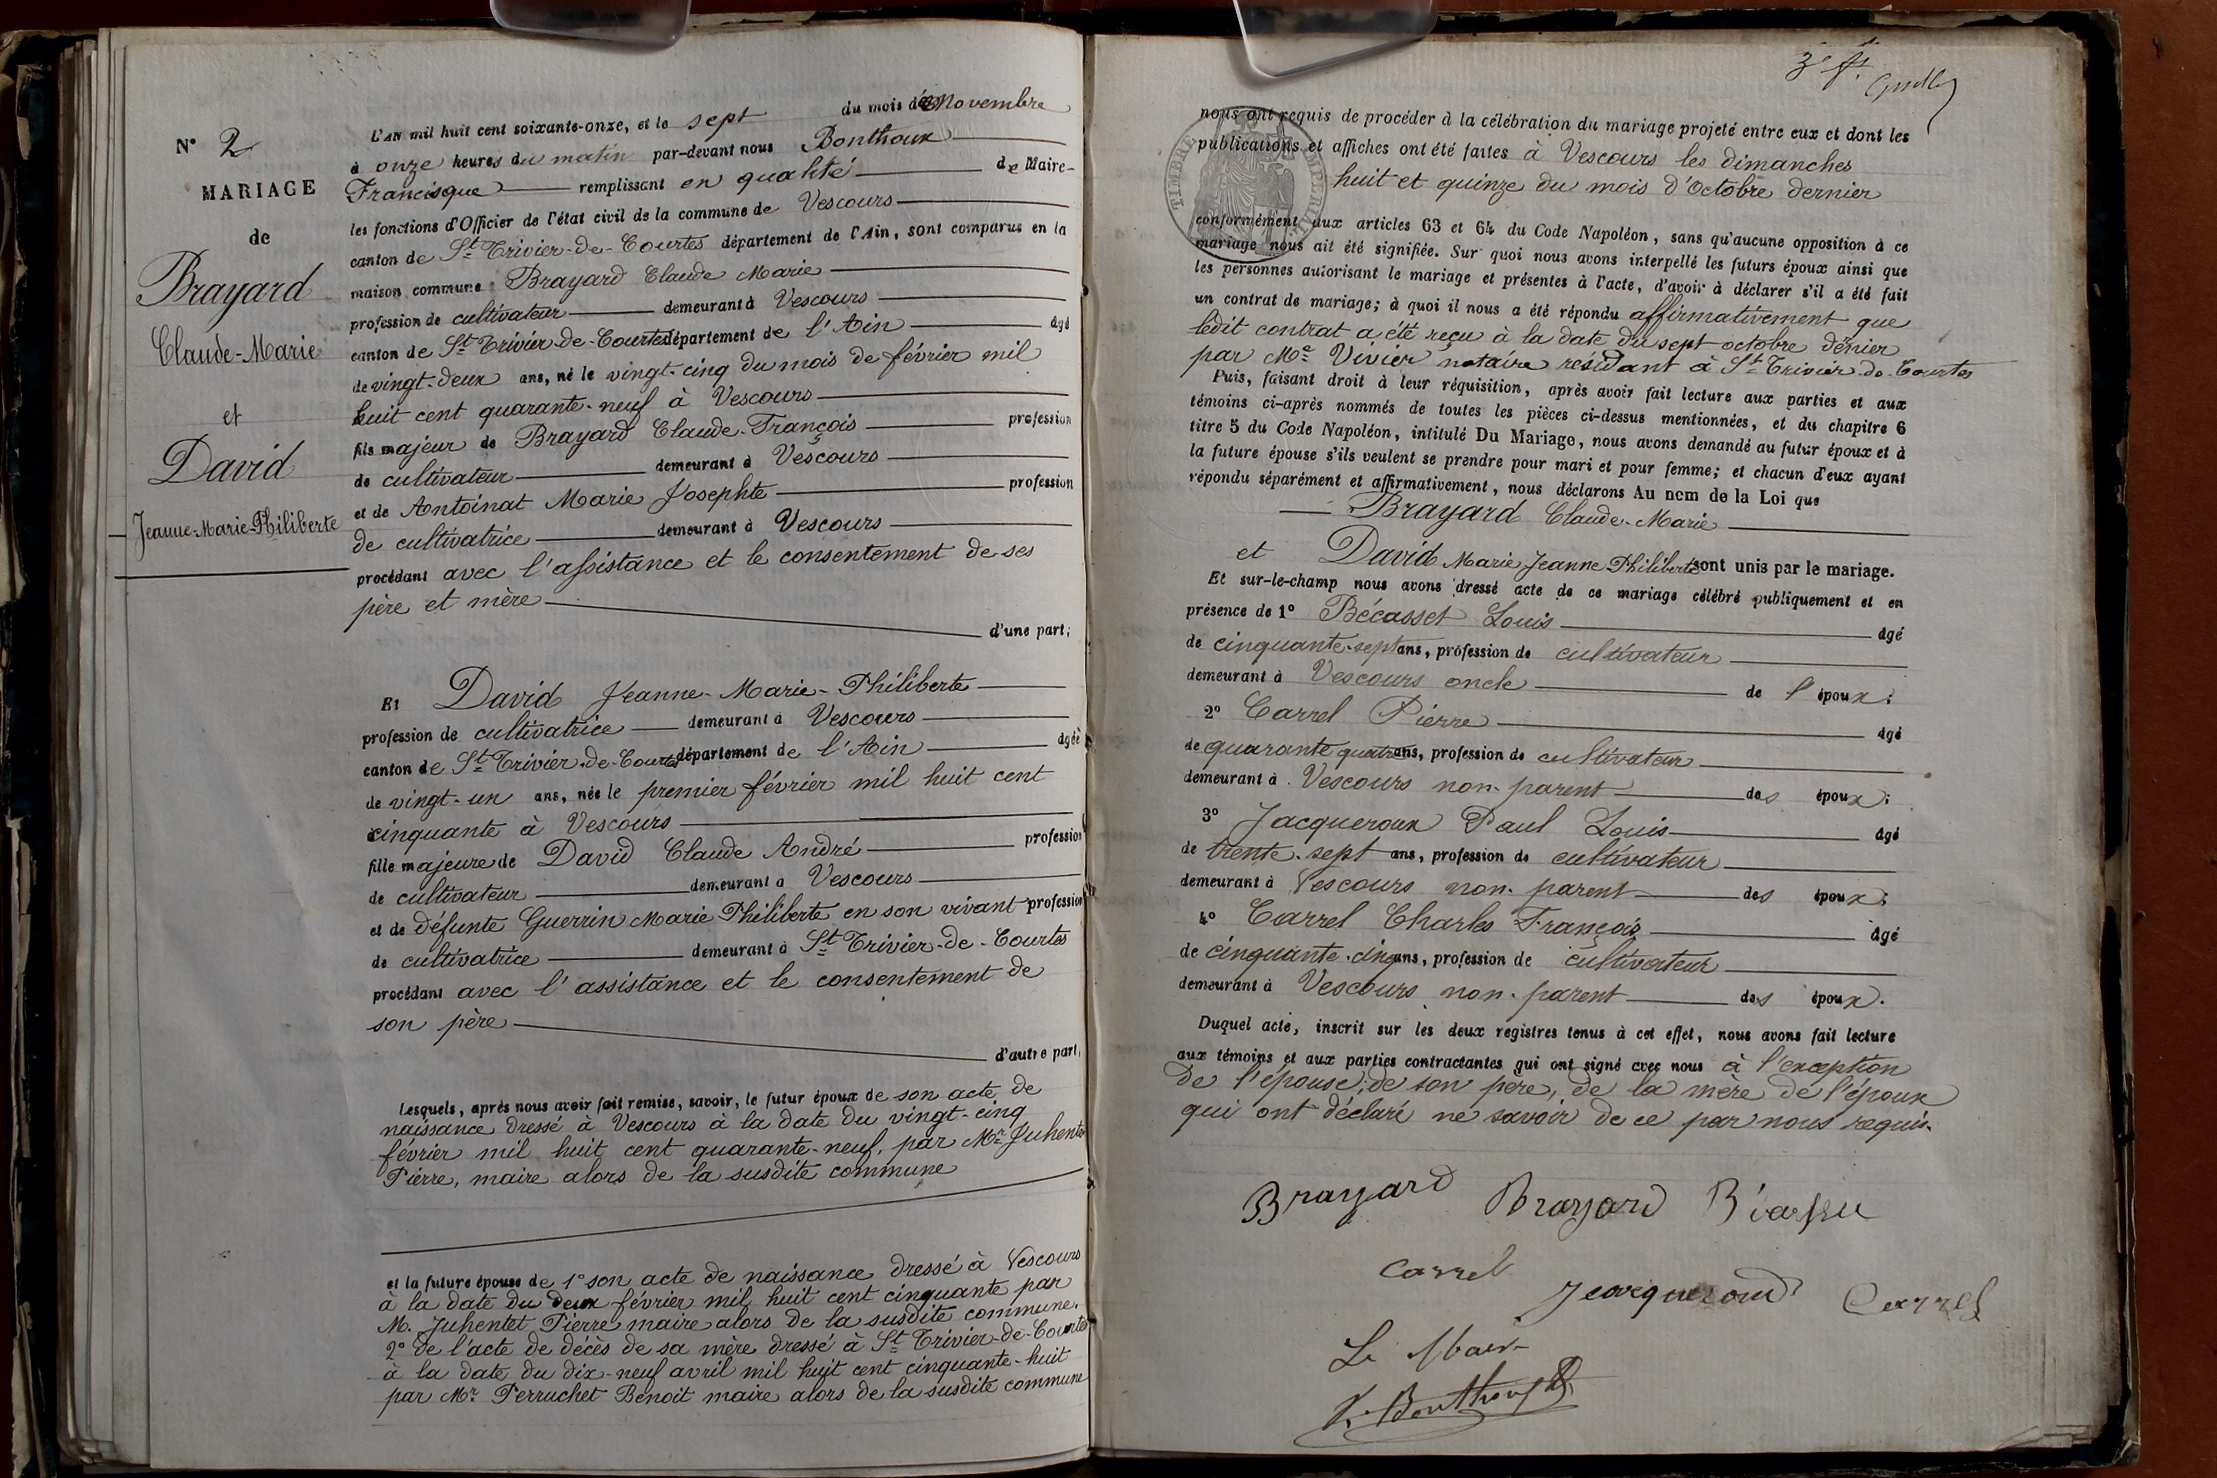 N° 2
MARIAGE
de
Brayard
Claude-Marie
et
David
Jeanne-Marie-Philiberte
L'AN mil huit cent soixante-onze, et le sept du mois de Novembre
à onze heures du matin par-devant nous Bonthoux
Francisque remplissant en qualité de Maire
les fonctions d'Officier de l'état civil de la commune de Vescours
canton de St Trivier-de-Courtes département de l'Ain, sont comparus en la
maison commune Brayard Claude Marie
profession de cultivateur demeurant à Vescours
canton de St Trivier-de-Courtes département de l'Ain âgé
de vingt-deux ans, né le vingt-cinq du mois de février mil
huit cent quarante-neuf à Vescours
fils majeur de Brayard Claude-François profession
de cultivateur demeurant à Vescours
et de Antoinat Marie Josephte profession
de cultivatrice demeurant à Vescours
procédant avec l'assistance et le consentement de ses
père et mère
d'une part;
Et David Jeanne-Marie-Philiberte
profession de cultivatrice demeurant à Vescours
canton de St Trivier-de-Courtes département de l'Ain âgée
de vingt-un ans, née le premier février mil huit cent
cinquante à Vescours
fille majeure de David Claude André profession
de cultivateur demeurant à Vescours
et de défunte Guerrin Marie Philiberte en son vivant profession
de cultivatrice demeurant à St Trivier-de-Courtes
procédant avec l'assistance et le consentement de
son père
d'autre part,
Lesquels, après nous avoir fait remise, savoir, le futur époux de son acte de
naissance dressé à Vescours à la date du vingt-cinq
février mil huit cent quarante-neuf, par Mr Juhentet
Pierre, maire alors de la susdite commune
et la future épouse de 1° son acte de naissance dressé à Vescours
à la date du deux février mil huit cent cinquante par
M. Juhentet Pierre maire alors de la susdite commune.
2° de l'acte de décès de sa mère dressé à St Trivier-de-Courtes
à la date du dix-neuf avril mil huit cent cinquante-huit
par Mr Perruchet Benoit maire alors de la susdite commune
3e ft
nous ont requis de procéder à la célébration du mariage projeté entre eux et dont les
publications et affiches ont été faites à Vescours les dimanches
huit et quinze du mois d'Octobre dernier
conformément aux articles 63 et 64 du Code Napoléon, sans qu'aucune opposition à ce
mariage nous ait été signifiée. Sur quoi nous avons interpellé les futurs époux ainsi que
les personnes autorisant le mariage et présentes à l'acte, d'avoir à déclarer s'il a été fait
un contrat de mariage; à quoi il nous a été répondu affirmativement que
ledit contrat a été reçu à la date du sept octobre dernier
par Me Vivier notaire résidant à St Trivier-de-Courtes
Puis, faisant droit à leur réquisition, après avoir fait lecture aux parties et aux
témoins ci-après nommés de toutes les pièces ci-dessus mentionnées, et du chapitre 6
titre 5 du Code Napoléon, intitulé Du Mariage, nous avons demandé au futur époux et à
la future épouse s'ils veulent se prendre pour mari et pour femme; et chacun d'eux ayant
répondu séparément et affirmativement, nous déclarons Au nom de la Loi que
Brayard Claude-Marie
et David Marie Jeanne Philiberte sont unis par le mariage.
Et sur-le-champ nous avons dressé acte de ce mariage célébré publiquement et en
présence de 1° Bécasset Louis âgé
de cinquante-sept ans, profession de cultivateur
demeurant à Vescours oncle de l'époux;
2° Carrel Pierre âgé
de quarante quatre ans, profession de cultivateur
demeurant à Vescours non-parent des époux;
3° Jacqueroux Paul Louis âgé
de trente-sept ans, profession de cultivateur
demeurant à Vescours non-parent des époux;
4° Carrel Charles François âgé
de cinquante-cinq ans, profession de cultivateur
demeurant à Vescours non-parent des époux.
Duquel acte, inscrit sur les deux registres tenus à cet effet, nous avons fait lecture
aux témoins et aux parties contractantes qui ont signé avec nous à l'exception
de l'épouse, de son père, de la mère de l'époux
qui ont déclaré ne savoir de ce par nous requis.
Brayard Brayard
Carrel
Jacqueroud Carrel
Le Maire
F. Bonthoux